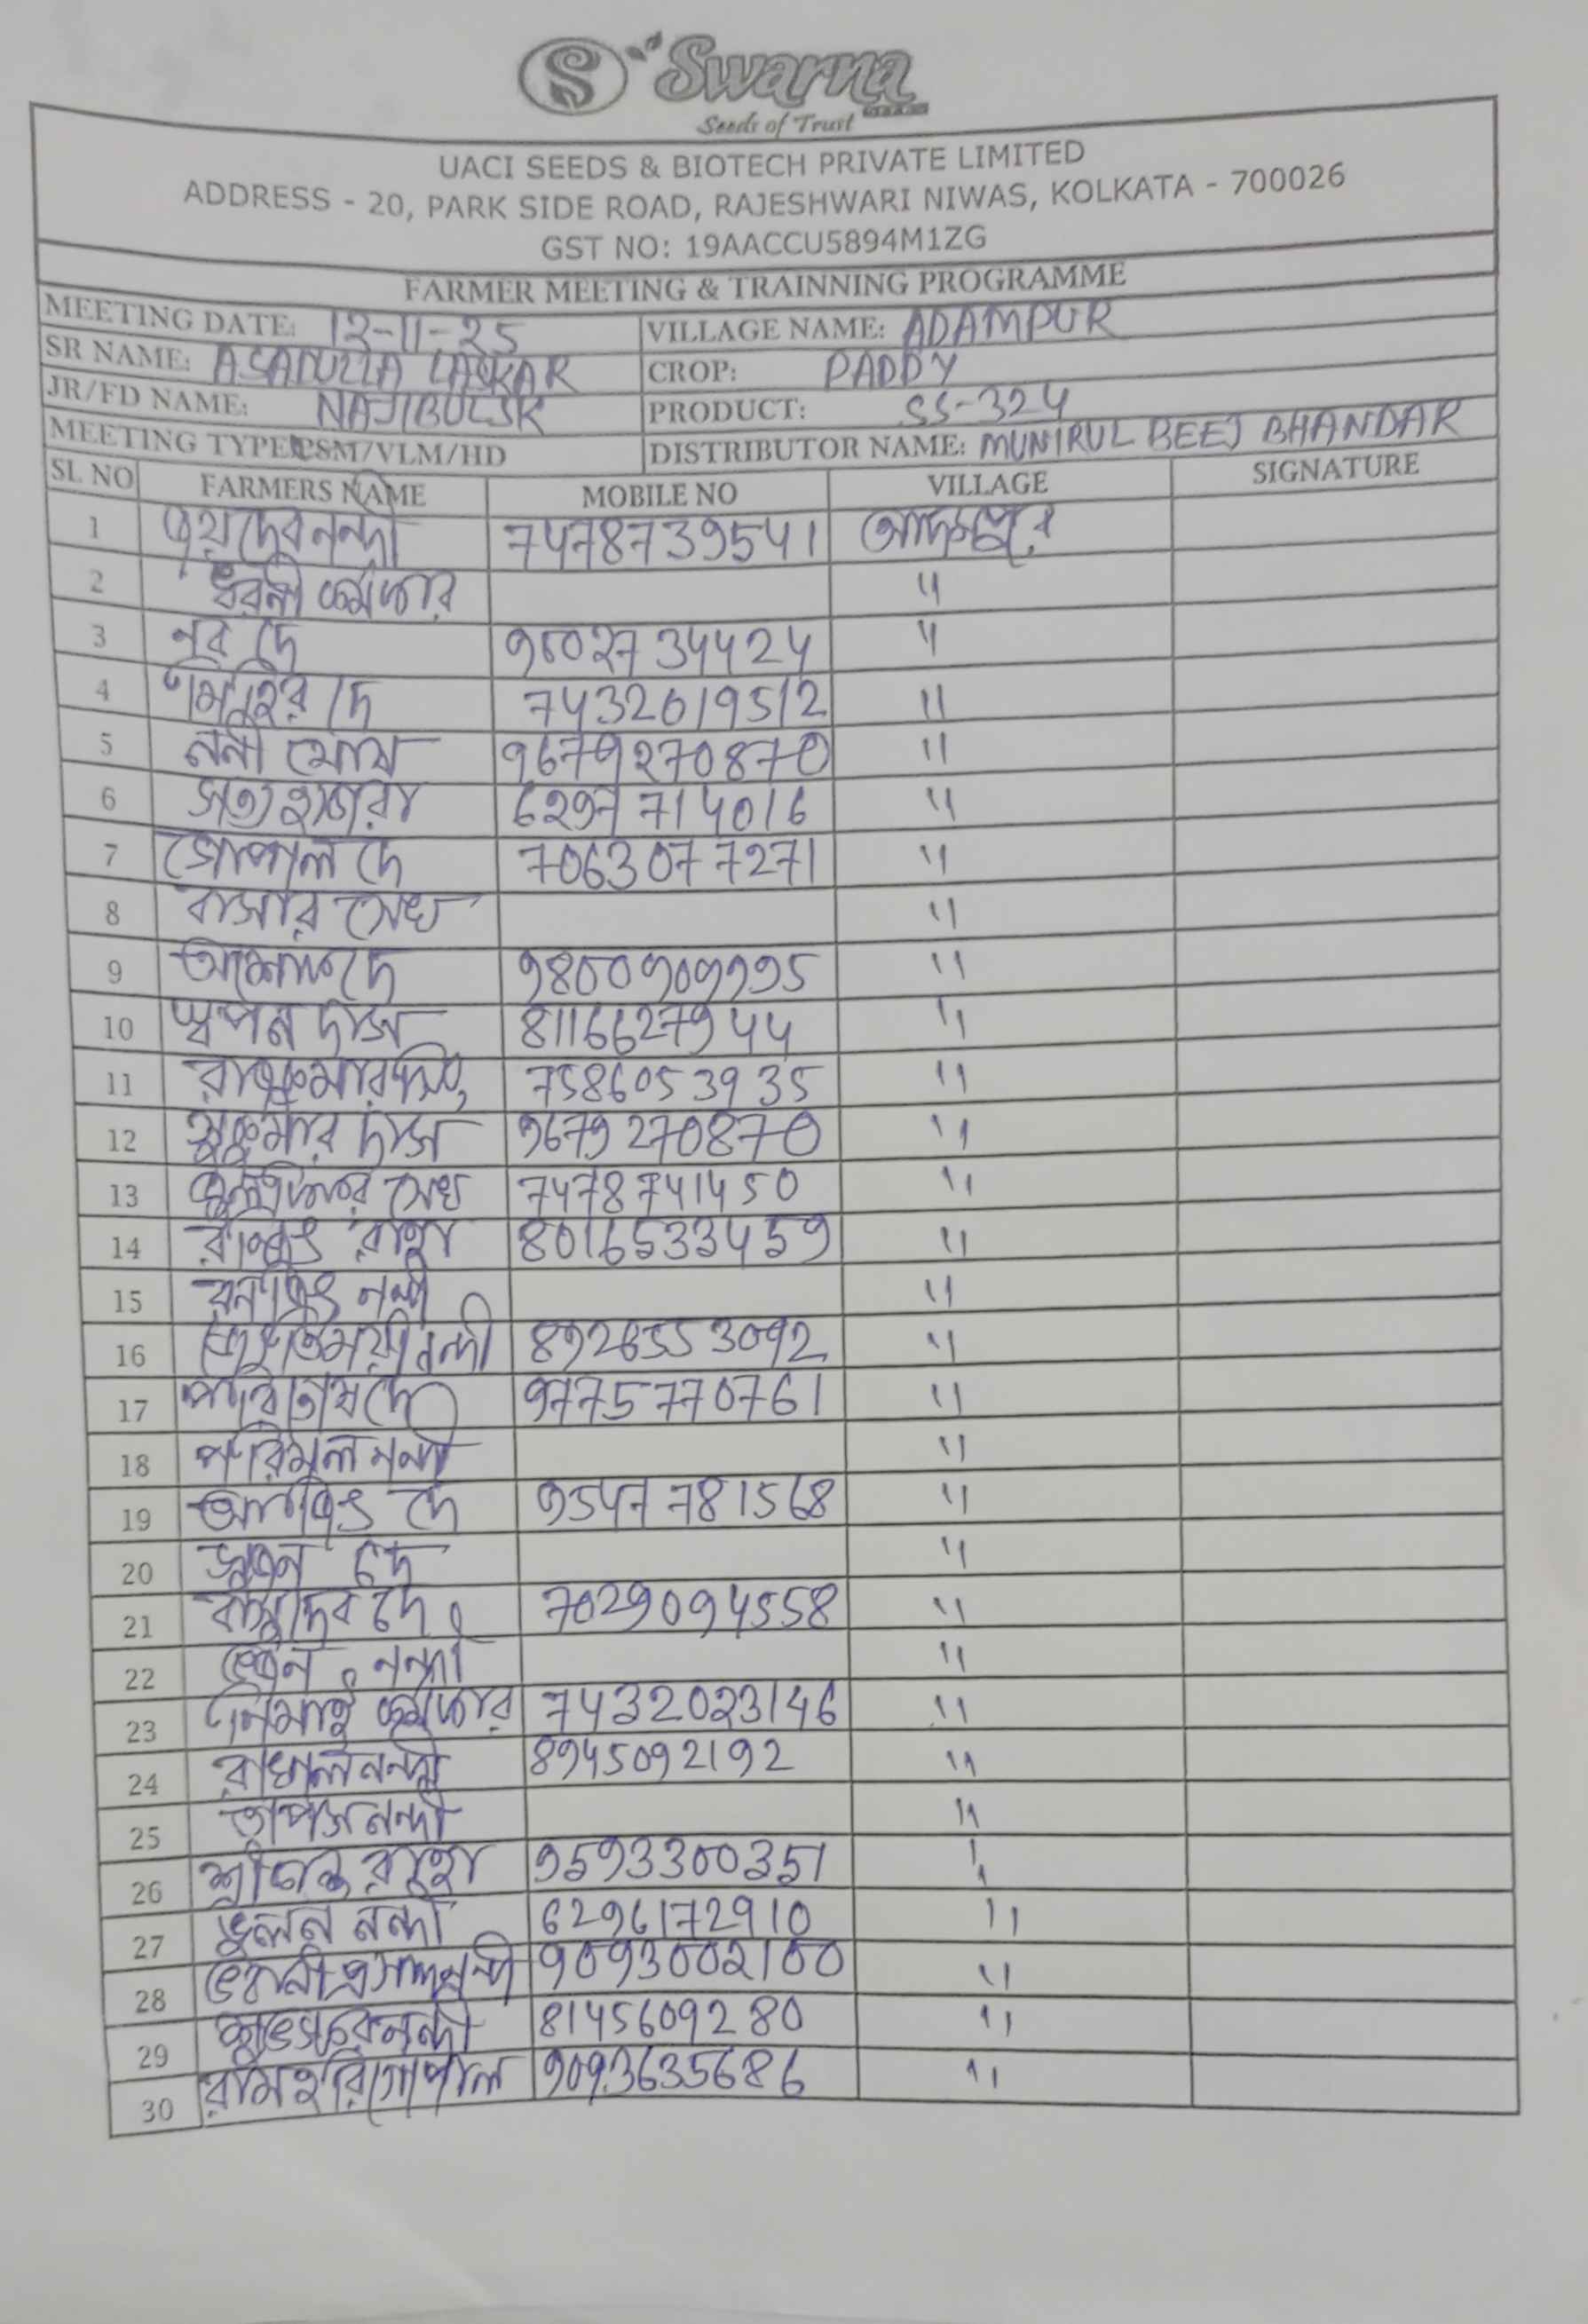 Swarna
Seeds of Trust
UACI SEEDS & BIOTECH PRIVATE LIMITED
ADDRESS - 20, PARK SIDE ROAD, RAJESHWARI NIWAS, KOLKATA - 700026
GST NO: 19AACCU5894M1ZG
FARMER MEETING & TRAINNING PROGRAMME
MEETING DATE: 12-11-25 VILLAGE NAME: ADAMPUR
SR NAME: ASADULLA LASKAR CROP: PADDY
JR/FD NAME: NAJIBUL SK PRODUCT: SS-324
MEETING TYPE: PSM/VLM/HD DISTRIBUTOR NAME: MUNIRUL BEEJ BHANDAR
SL NO FARMERS NAME MOBILE NO VILLAGE SIGNATURE
1 জয়দেব নন্দী 7478739541 আদমপুর
2 ধরনী কর্মকার "
3 নব দে 9602734424 "
4 মিহির দে 7432619512 "
5 ননী ঘোষ 9679270870 "
6 সত্য হাজরা 6297714016 "
7 গোপাল দে 7063077271 "
8 বাসার সেখ "
9 অশোক দে 9800909995 "
10 স্বপন দাস 8116627944 "
11 রাজকুমার সিং 7586053935 "
12 সুকুমার দাস 9679270870 "
13 সেখ 7478741450 "
14 রনজিৎ রাহা 8016533459 "
15 রনজিৎ নন্দী "
16 নন্দী 8926553092 "
17 পরিতোষ দে 9775770761 "
18 পরিমল নন্দী "
19 অভিজিৎ দে 9547781568 "
20 সুজন দে "
21 বাসুদেব দে 7029094558 "
22 নন্দী "
23 নিমাই কর্মকার 7432023146 "
24 রাখাল নন্দী 8945092192 "
25 তাপস নন্দী "
26 রাহা 9593300351 "
27 নন্দী 6296172910 "
28 ভবানীপ্রসাদ নন্দী 9093002100 "
29 নন্দী 8145609280 "
30 রামহরি গোপাল 9093635686 "